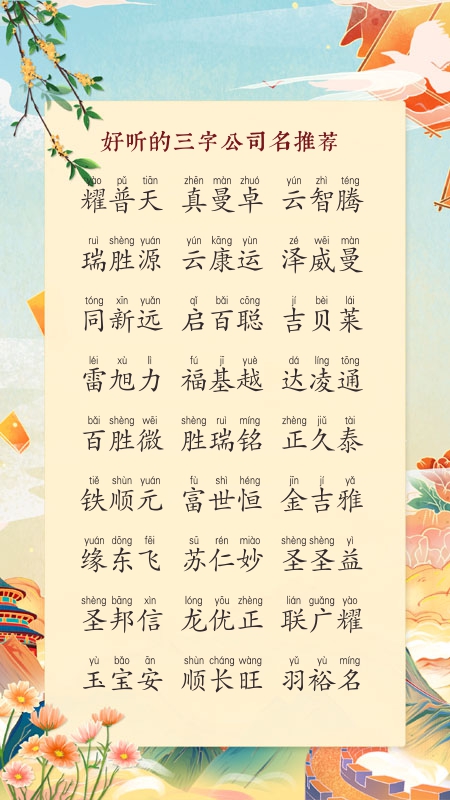 好听的三字公司名推荐
yào pǔ tiān zhēn màn zhuó yún zhì téng
耀普天 真曼卓 云智腾
ruì shèng yuán yún kāng yùn zé wēi màn
瑞胜源 云康运 泽威曼
tóng xīn yuǎn qǐ bǎi cōng jí bèi lái
同新远 启百聪 吉贝莱
léi xù lì fú jī yuè dá líng tōng
雷旭力 福基越 达凌通
bǎi shèng wēi shèng ruì míng zhèng jiǔ tài
百胜微 胜瑞铭 正久泰
tiě shùn yuán fù shì héng jīn jí yǎ
铁顺元 富世恒 金吉雅
yuán dōng fēi sū rén miào shèng shèng yì
缘东飞 苏仁妙 圣圣益
shèng bāng xìn lóng yōu zhèng lián guǎng yào
圣邦信 龙优正 联广耀
yù bǎo ān shùn cháng wàng yǔ yù míng
玉宝安 顺长旺 羽裕名